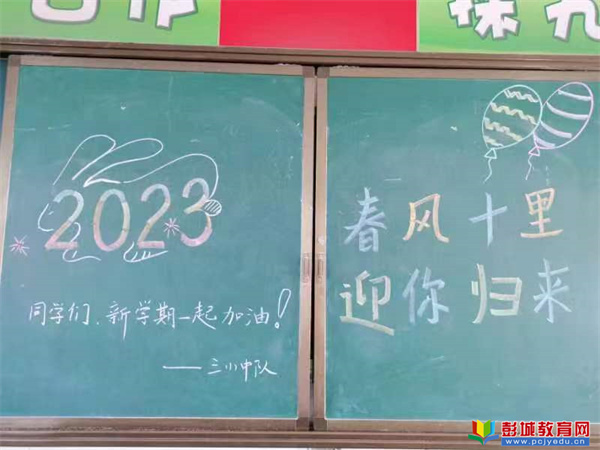 合作
探究
2023
同学们、新学期一起加油!
——三川中队
春风十里
迎你归来
彭城教育网
www.pcjyedu.cn